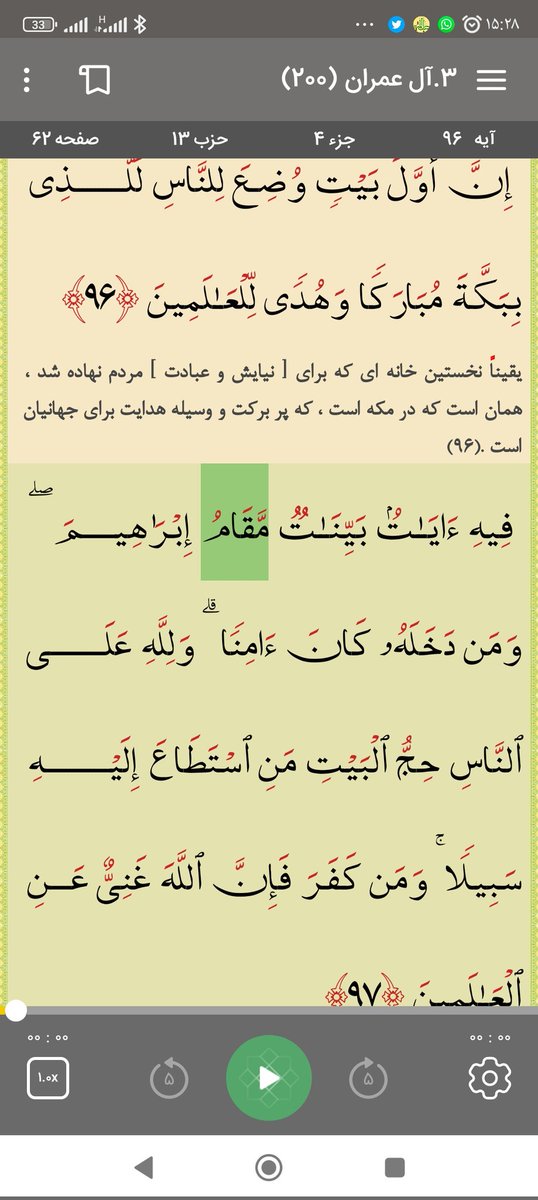 33 H ۱۵:۲۸
۳.آل عمران (۲۰۰)
آیه ۹۶ جزء ۴ حزب ۱۳ صفحه ۶۲
إِنَّ أَوَّلَ بَيْتٍ وُضِعَ لِلنَّاسِ لَلَّذِی
بِبَكَّةَ مُبَارَكًا وَهُدًى لِّلْعَـٰلَمِينَ ﴿۹۶﴾
یقیناً نخستین خانه ای که برای [ نیایش و عبادت ] مردم نهاده شد ،
همان است که در مکه است ، که پر برکت و وسیله هدایت برای جهانیان
است .(۹۶)
فِيهِ ءَايَـٰتٌۢ بَيِّنَـٰتٌ مَّقَامُ إِبْرَاهِيمَ ۖ
وَمَن دَخَلَهُۥ كَانَ ءَامِنًا ۗ وَلِلَّهِ عَلَى
ٱلنَّاسِ حِجُّ ٱلْبَيْتِ مَنِ ٱسْتَطَاعَ إِلَيْهِ
سَبِيلًا ۚ وَمَن كَفَرَ فَإِنَّ ٱللَّهَ غَنِىٌّ عَنِ
ٱلْعَـٰلَمِينَ ﴿۹۷﴾
۰۰ : ۰۰ ۰۰ : ۰۰
۱.۰x ۵ ۵